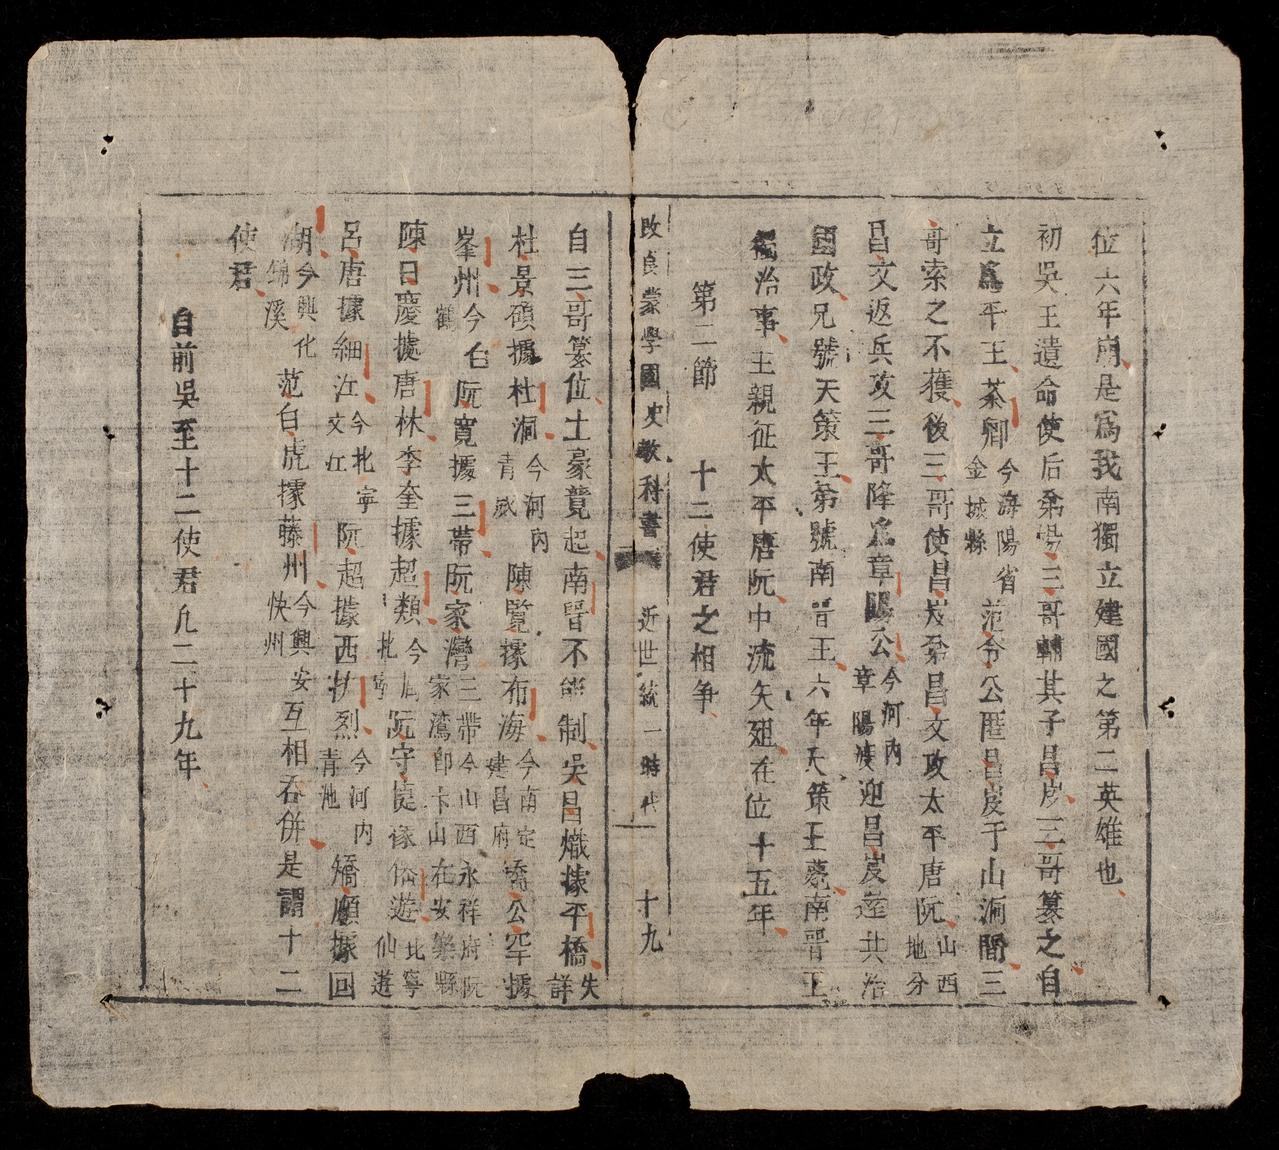 位六年崩是爲我南獨立建國之第二英雄也
初吳王遺命使后弟楊三哥輔其子昌岌三哥篡之自
立爲平王茶鄉今海陽省金城縣范令公匿昌岌于山洞間三
哥索之不獲後三哥使昌岌弟昌文攻太平唐阮山西地分
昌文返兵攻三哥降爲章陽公今河內章陽渡迎昌岌莅共治
國政兄號天策王弟號南晉王六年天策王薨南晉王
獨治事王親征太平唐阮中流矢殂在位十五年
第二節 十二使君之相爭
改良蒙學國史教科書 近世統一時代 十九
自三哥篡位土豪競起南晉不能制吳昌熾據平橋失詳
杜景碩據杜洞今河內青威陳覽據布海今南定建昌府矯公罕據
峯州今白鶴阮寬據三帶阮家灣三帶今山西永祥府阮家灣卽卞山在安樂縣
陳日慶據唐林李奎據超類今北寧阮守捷據僊遊北寧仙遊
呂唐據細江今北寧文江阮超據西扶烈今河內青池矯順據回
湖今興化錦溪范白虎據藤州今興安快州互相吞併是謂十二
使君
自前吳至十二使君凡二十九年